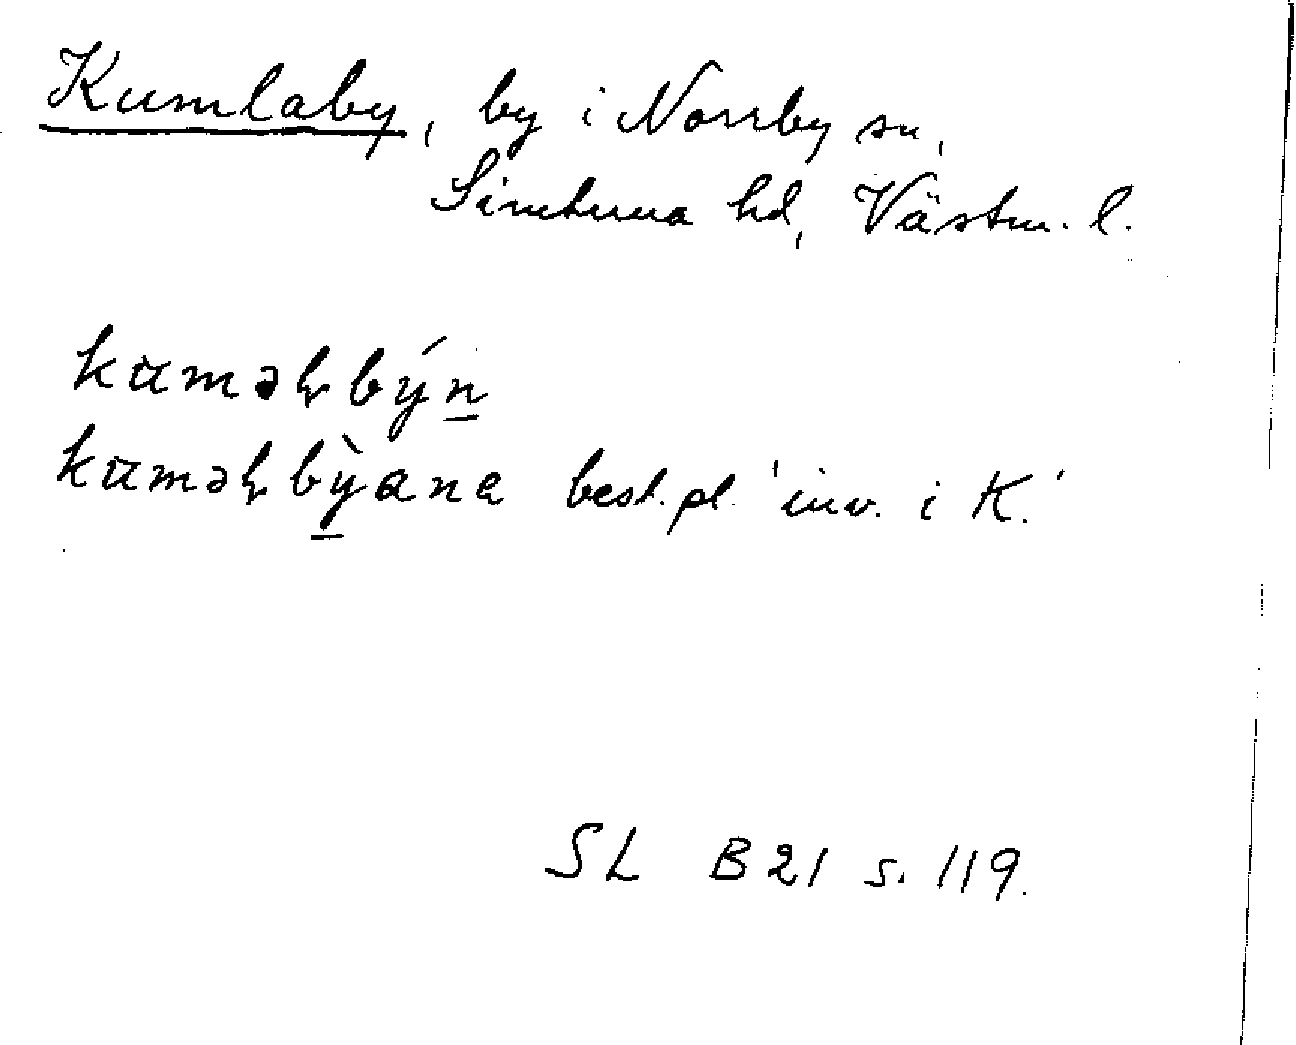 Kumlaby, by i Norrby sn,
Simtuna hd, Västm. l.
kuməⱨbýn̲
kuməⱨbỳ̲ana best. pl. 'inv. i K.'
SL B21 s. 119.